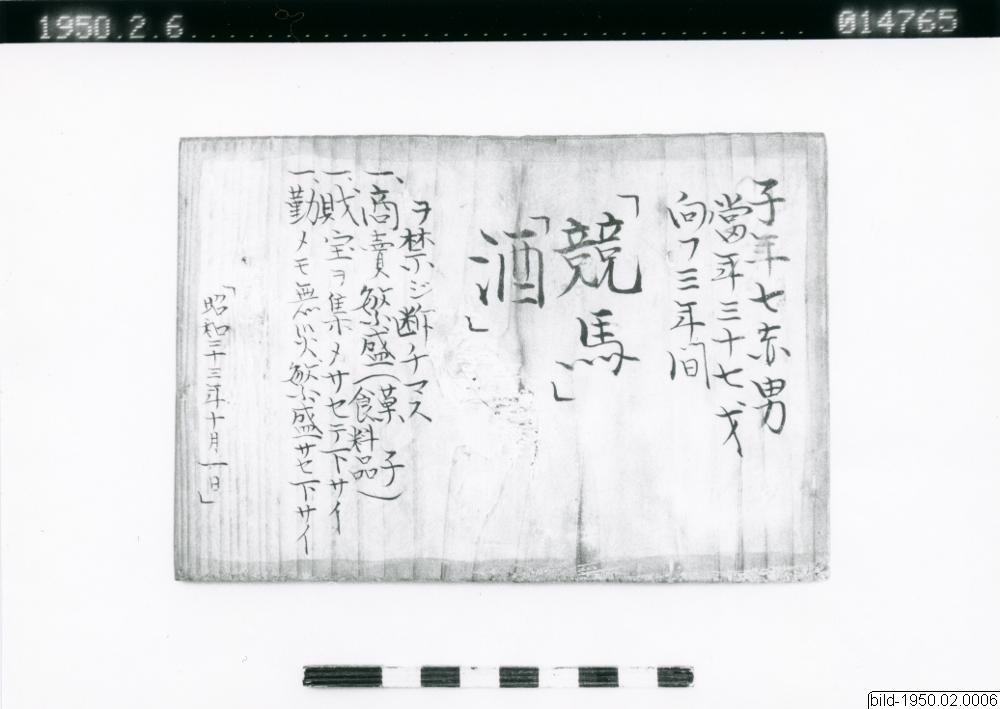 1950.2.6
014765
子年七赤男
當年三十七才
向フ三年間
「競馬」
「酒」
ヲ禁ジ断チマス
一、商賣繁盛(菓子)(食料品)
一、財宝ヲ集メサセテ下サイ
一、勤メモ無災繁盛サセ下サイ
「昭和三十三年十月一日」
bild-1950.02.0006